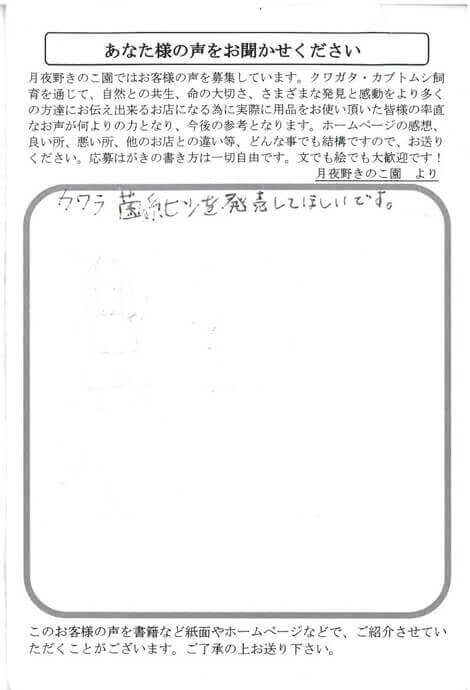 あなた様の声をお聞かせください
月夜野きのこ園ではお客様の声を募集しています。クワガタ・カブトムシ飼
育を通じて、自然との共生、命の大切さ、さまざまな発見と感動をより多く
の方達にお伝え出来るお店になる為に実際に用品をお使い頂いた皆様の率直
なお声が何よりの力となり、今後の参考となります。ホームページの感想、
良い所、悪い所、他のお店との違い等、どんな事でも結構ですので、お送り
ください。応募はがきの書き方は一切自由です。文でも絵でも大歓迎です！
月夜野きのこ園　より
カワラ菌糸ビンを発売してほしいです。
このお客様の声を書籍など紙面やホームページなどで、ご紹介させてい
ただくことがございます。ご了承の上お送り下さい。